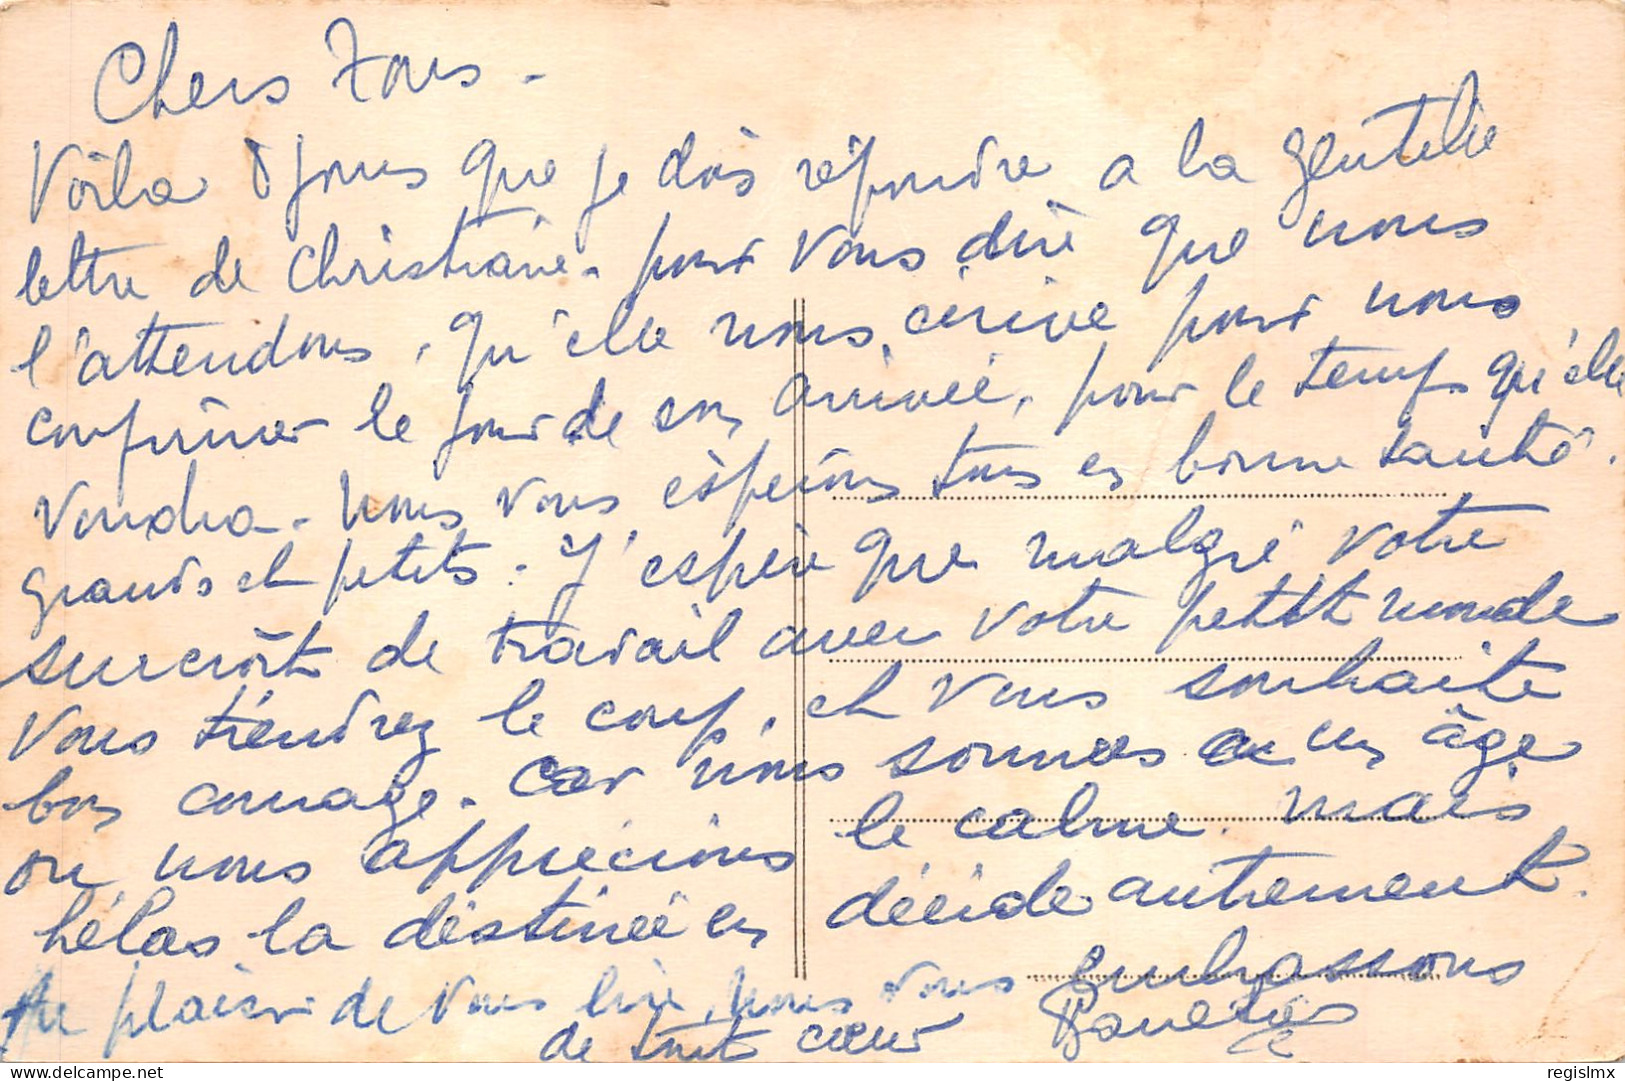 Chers Tous -
Voila 8 jours que je dois répondre a la gentille
lettre de Christiane - pour vous dire que nous
l'attendons, qu'elle nous écrive pour nous
confirmer le jour de son arrivée, pour le temps qu'elle
voudra - Nous vous espérons tous en bonne santé.
grands et petits - J'espère que malgré votre
surcroît de travail avec votre petit monde
vous tiendrez le coup, et vous souhaite
bon courage - car nous sommes a un âge
ou nous apprécions le calme. mais
hélas la destinée en décide autrement.
Au plaisir de vous lire, nous vous embrassons
de tout cœur
www.delcampe.net
regislmx